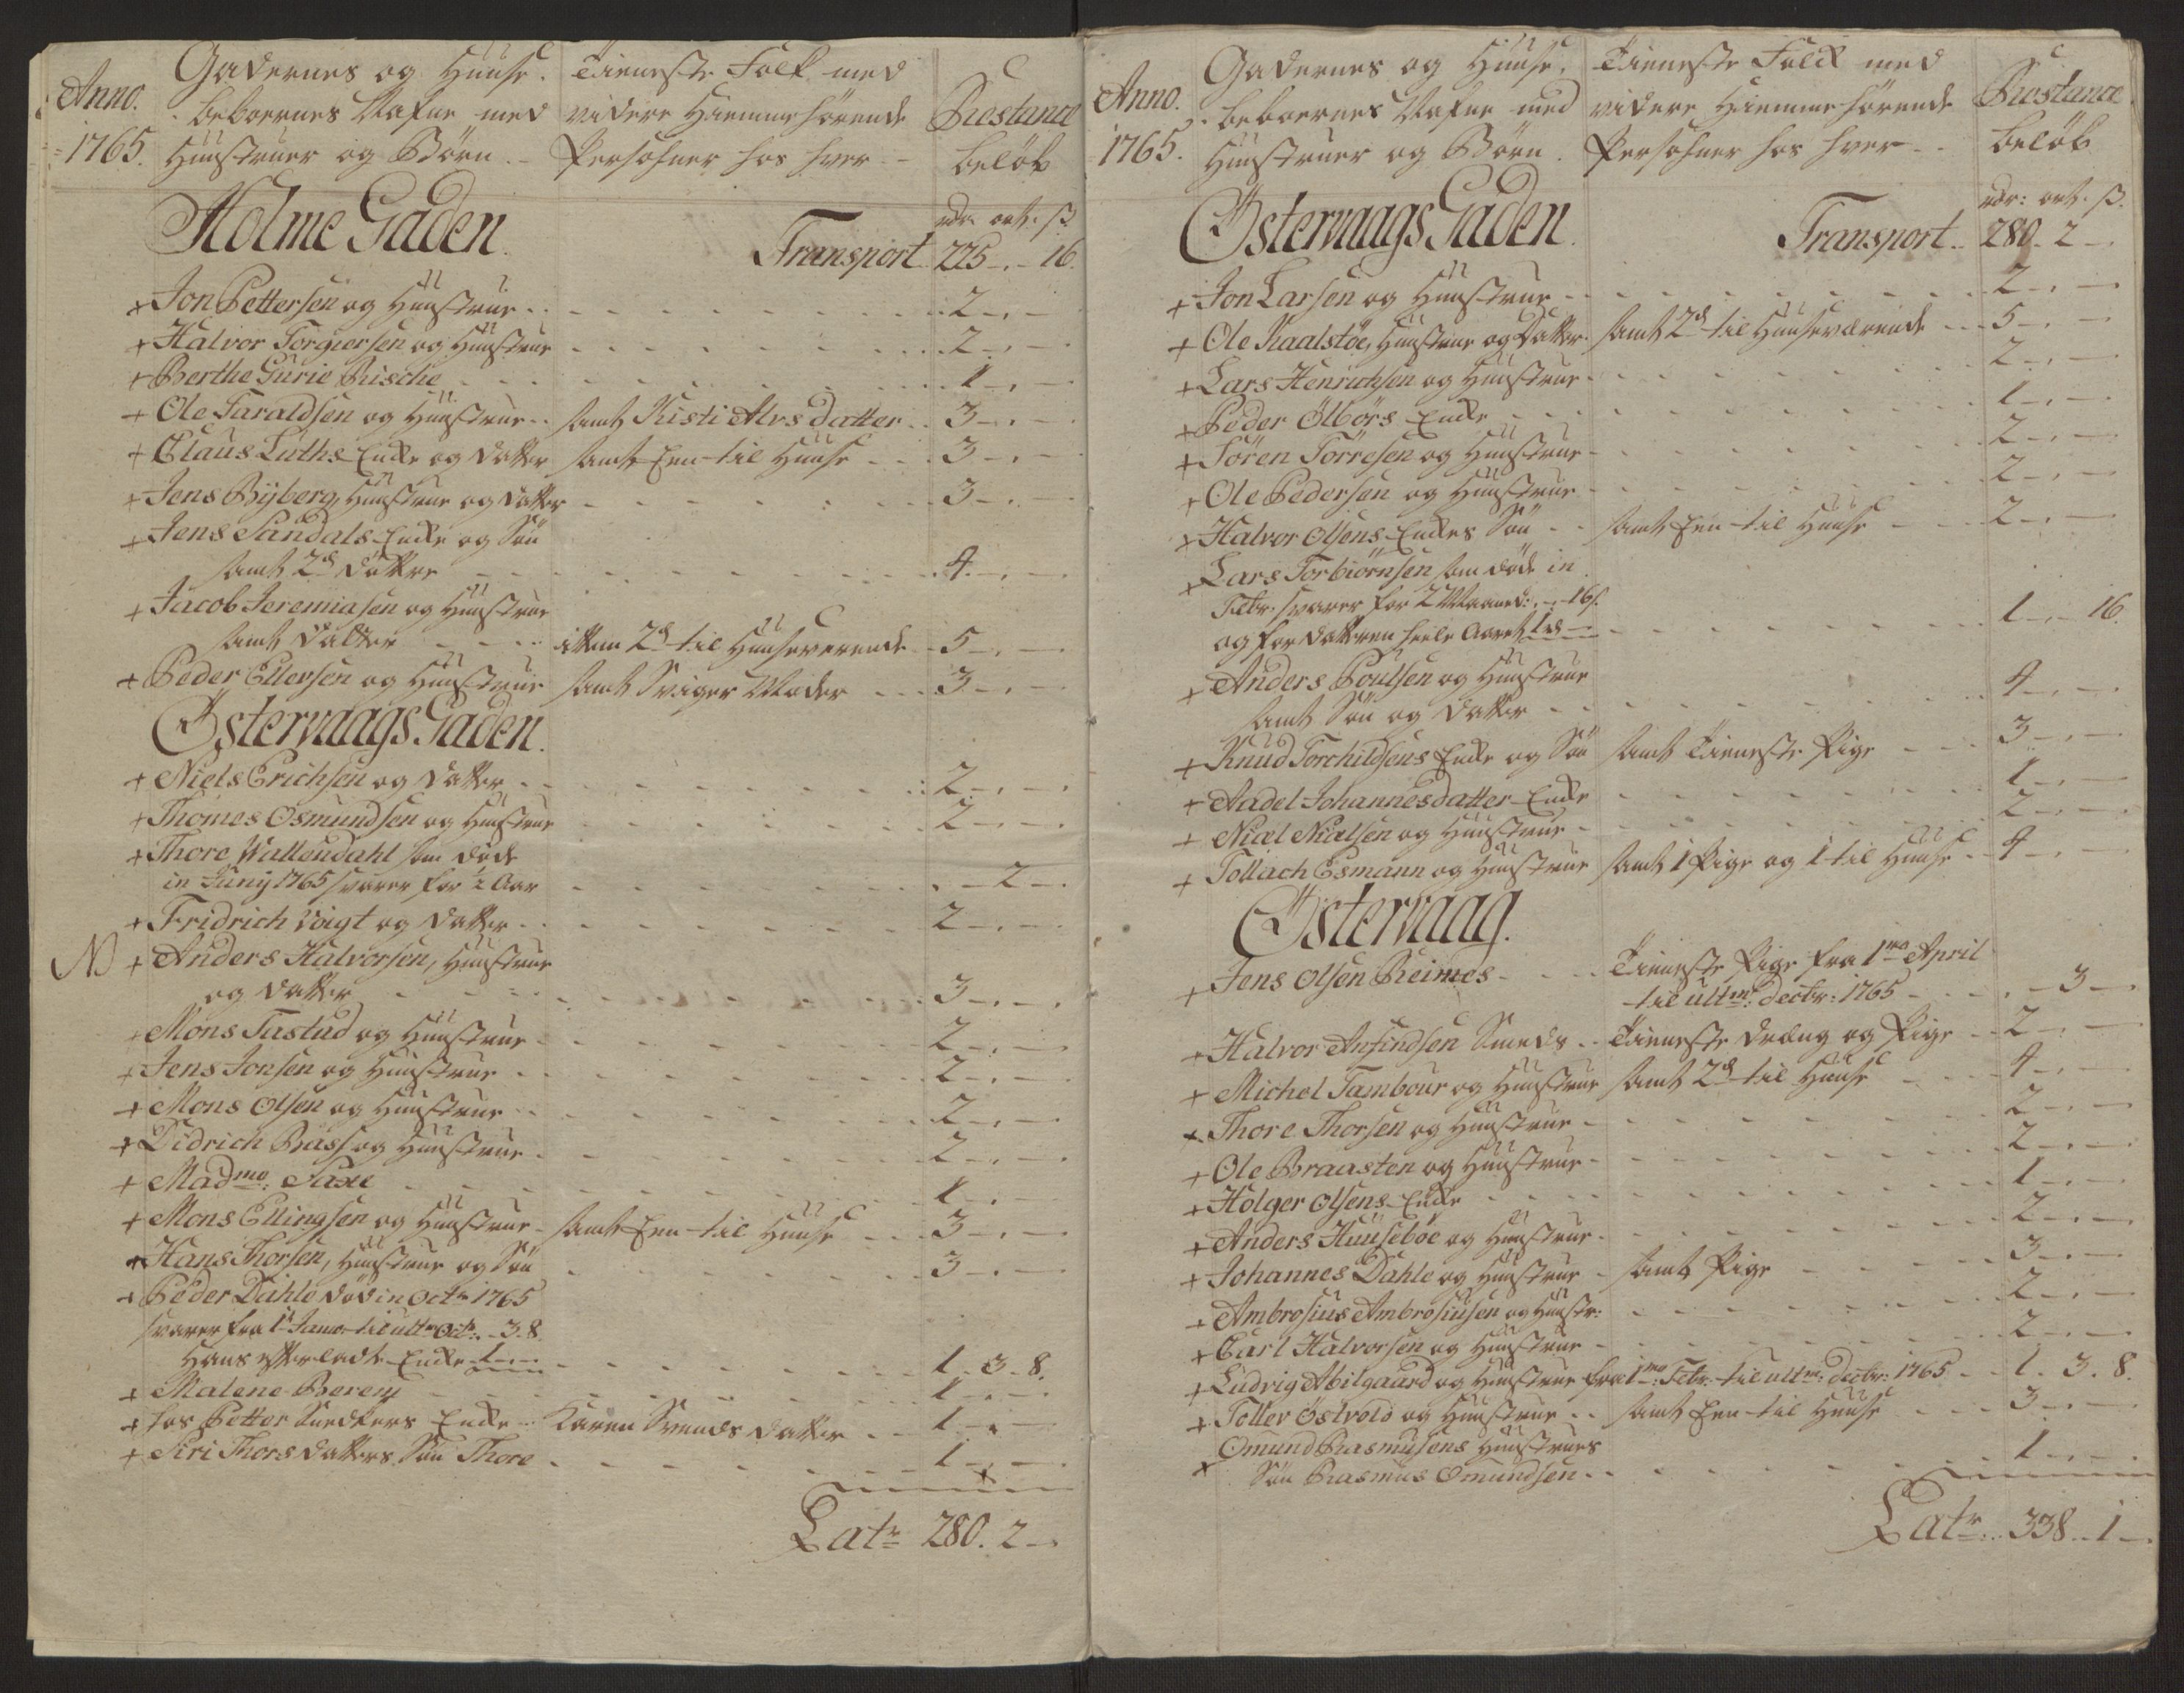 Anno. 1765.
Gadernes og Huuse. beboernes Nafne med Hustruer og Börn.
Tieneste Folk med videre Hiemmehörende Persohner hos hver
Restance belöb
Holme Gaden.
rdr. ort. ß.
Transport 225 - . - 16.
+ Jon Pettersen og Huustrue . . 2 - . -
+ Halvor Torgiersen og Huustrue 2 - . -
+ Berthe Gurie Rische 1 - . -
+ Ole Taraldsen og Huustrue . . samt Kisti Alvs datter . . 3 - . -
+ Claus Luths Encke og datter samt Een til Huuse . . 3 - . -
+ Jens Byberg, Huustrue og datter 3 - . -
+ Jens Sandals Encke og Sön
samt 2de döttre 4 - . -
+ Jacob Jeremiasen og Huustrue
samt datter item 2de til Huuseverende 5 - . -
+ Peder Ellersen og Huustrue samt Sviger Moder 3 - . -
Östervaags Gaden.
+ Niels Erichsen og datter 2 - . -
+ Thomes Osmundsen og Huustrue 2 - . -
+ Thore Wallendahl som döde
in Juny 1765 svarer for ½ Aar . - 2 -
+ Fridrich Voigt og datter 2 - . -
N + Anders Halvorsen, Huustrue
og datter 3 - . -
+ Mons Tastad og Huustrue 2 - . -
+ Jens Jonsen og Huustrue 2 - . -
+ Mons Olsen og Huustrue 2 - . -
+ Didrich Bass og Huustrue 2 - . -
+ Madme: Saxe 1 - . -
+ Mons Ellingsen og Huustrue samt Een til Huuse 3 - . -
+ Hans Thorsen, Huustrue og Sön 3 - . -
+ Peder Dahle död in Octr 1765
svarer fra 1t Janr. til ultmo Octr. . 3. 8.
Hans efterladte Encke 1 - . - 1. 3. 8.
+ Malene Bereny 1 - . -
+ hos Petter Snedkers Encke Karen Svends datter 1 - . -
+ Siri Thors datters Sön Thore 1 - . -
Latr 280. 2 -
Anno. 1765.
Gadernes og Huuse. beboernes Nafne med Hustruer og Börn.
Tieneste Folck med videre Hiemmehörende Persohner hos hver
Restance belöb
Östervaags Gaden.
rdr: ort. ß.
Transport 280. 2 -
+ Jon Larsen og Huustrue 2 - . -
+ Ole Kaalstöe, Huustrue og Datter samt 2de til Huuseværende 5 - . -
+ Lars Henrichsen og Huustrue 2 - . -
+ Peder Ölbörs Encke 1 - . -
+ Sören Törresen og Huustrue 2 - . -
+ Ole Pedersen og Huustrue 2 - . -
+ Halvor Olsens Enckes Sön samt Een til Huuse 2 - . -
+ Lars Torbiörnsen som döde in
Febr. svarer for 2 Maaned: . - 16ß.
og for datteren heele Aaret 1 rd - 1 - . - 16.
+ Anders Poulsen og Huustrue
samt Sön og datter 4 - . -
+ Knud Torchildsens Encke og Sön samt Tieneste Pige 3 - . -
+ Aadel Johannesdatter Encke 1 - . -
+ Niæl Niælsen og Huustrue 2 - . -
+ Tollach Esmann og Huustrue samt 1 Pige og 1 til Huuse 4 - . -
Östervaag.
+ Jens Olsen Reimes Tieneste Pige fra 1mo April
til ultmo: Decbr: 1765 . - 3 -
+ Halvor Anfindsen Smeds Tieneste dreng og Pige 2 - . -
+ Michel Tambour og Huustrue samt 2de til Huuse 4 - . -
+ Thore Thorsen og Huustrue 2 - . -
+ Ole Braasten og Huustrue 2 - . -
+ Holger Olsens Encke 1 - . -
+ Anders Huuseböe og Huustrue 2 - . -
+ Johannes Dahle og Huustrue samt Pige 3 - . -
+ Ambrosius Ambrosiusen og Huustr: 2 - . -
+ Carl Halvorsen og Huustrue 2 - . -
+ Ludvig Abilgaard og Huustrue fra 1mo: Febr. til ultmo: Decbr: 1765. 1. 3. 8.
+ Toller Östvold og Huustrue samt Een til Huuse 3 - . -
+ Omund Rasmusens Huustrues
Sön Rasmus Omundsen 1 - . -
Latr. 338. 1 -